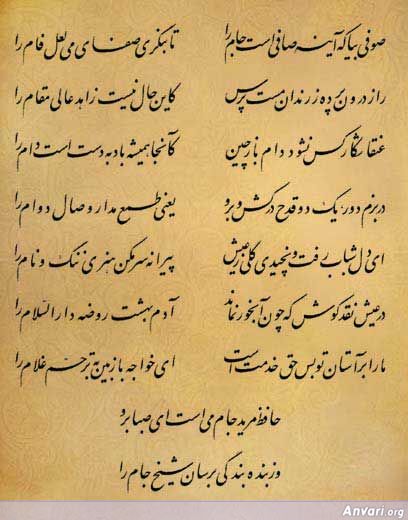 صوفی بیا که آینه صافی است جام را تا بنگری صفای می لعل فام را
راز درون پرده ز رندان مست پرس کاین حال نیست زاهد عالی مقام را
عنقا شکار کس نشود دام بازچین کآنجا همیشه باد به دست است دام را
در بزم دور یک دو قدح درکش و برو یعنی طمع مدار وصال دوام را
ای دل شباب رفت و نچیدی گلی ز عیش پیرانه سر مکن هنری ننگ و نام را
در عیش نقد کوش که چون آبخور نماند آدم بهشت روضه دارالسّلام را
ما را بر آستان تو بس حق خدمت است ای خواجه بازبین به ترحّم غلام را
حافظ مرید جام می است ای صبا برو
وز بنده بندگی برسان شیخ جام را
Anvari.org